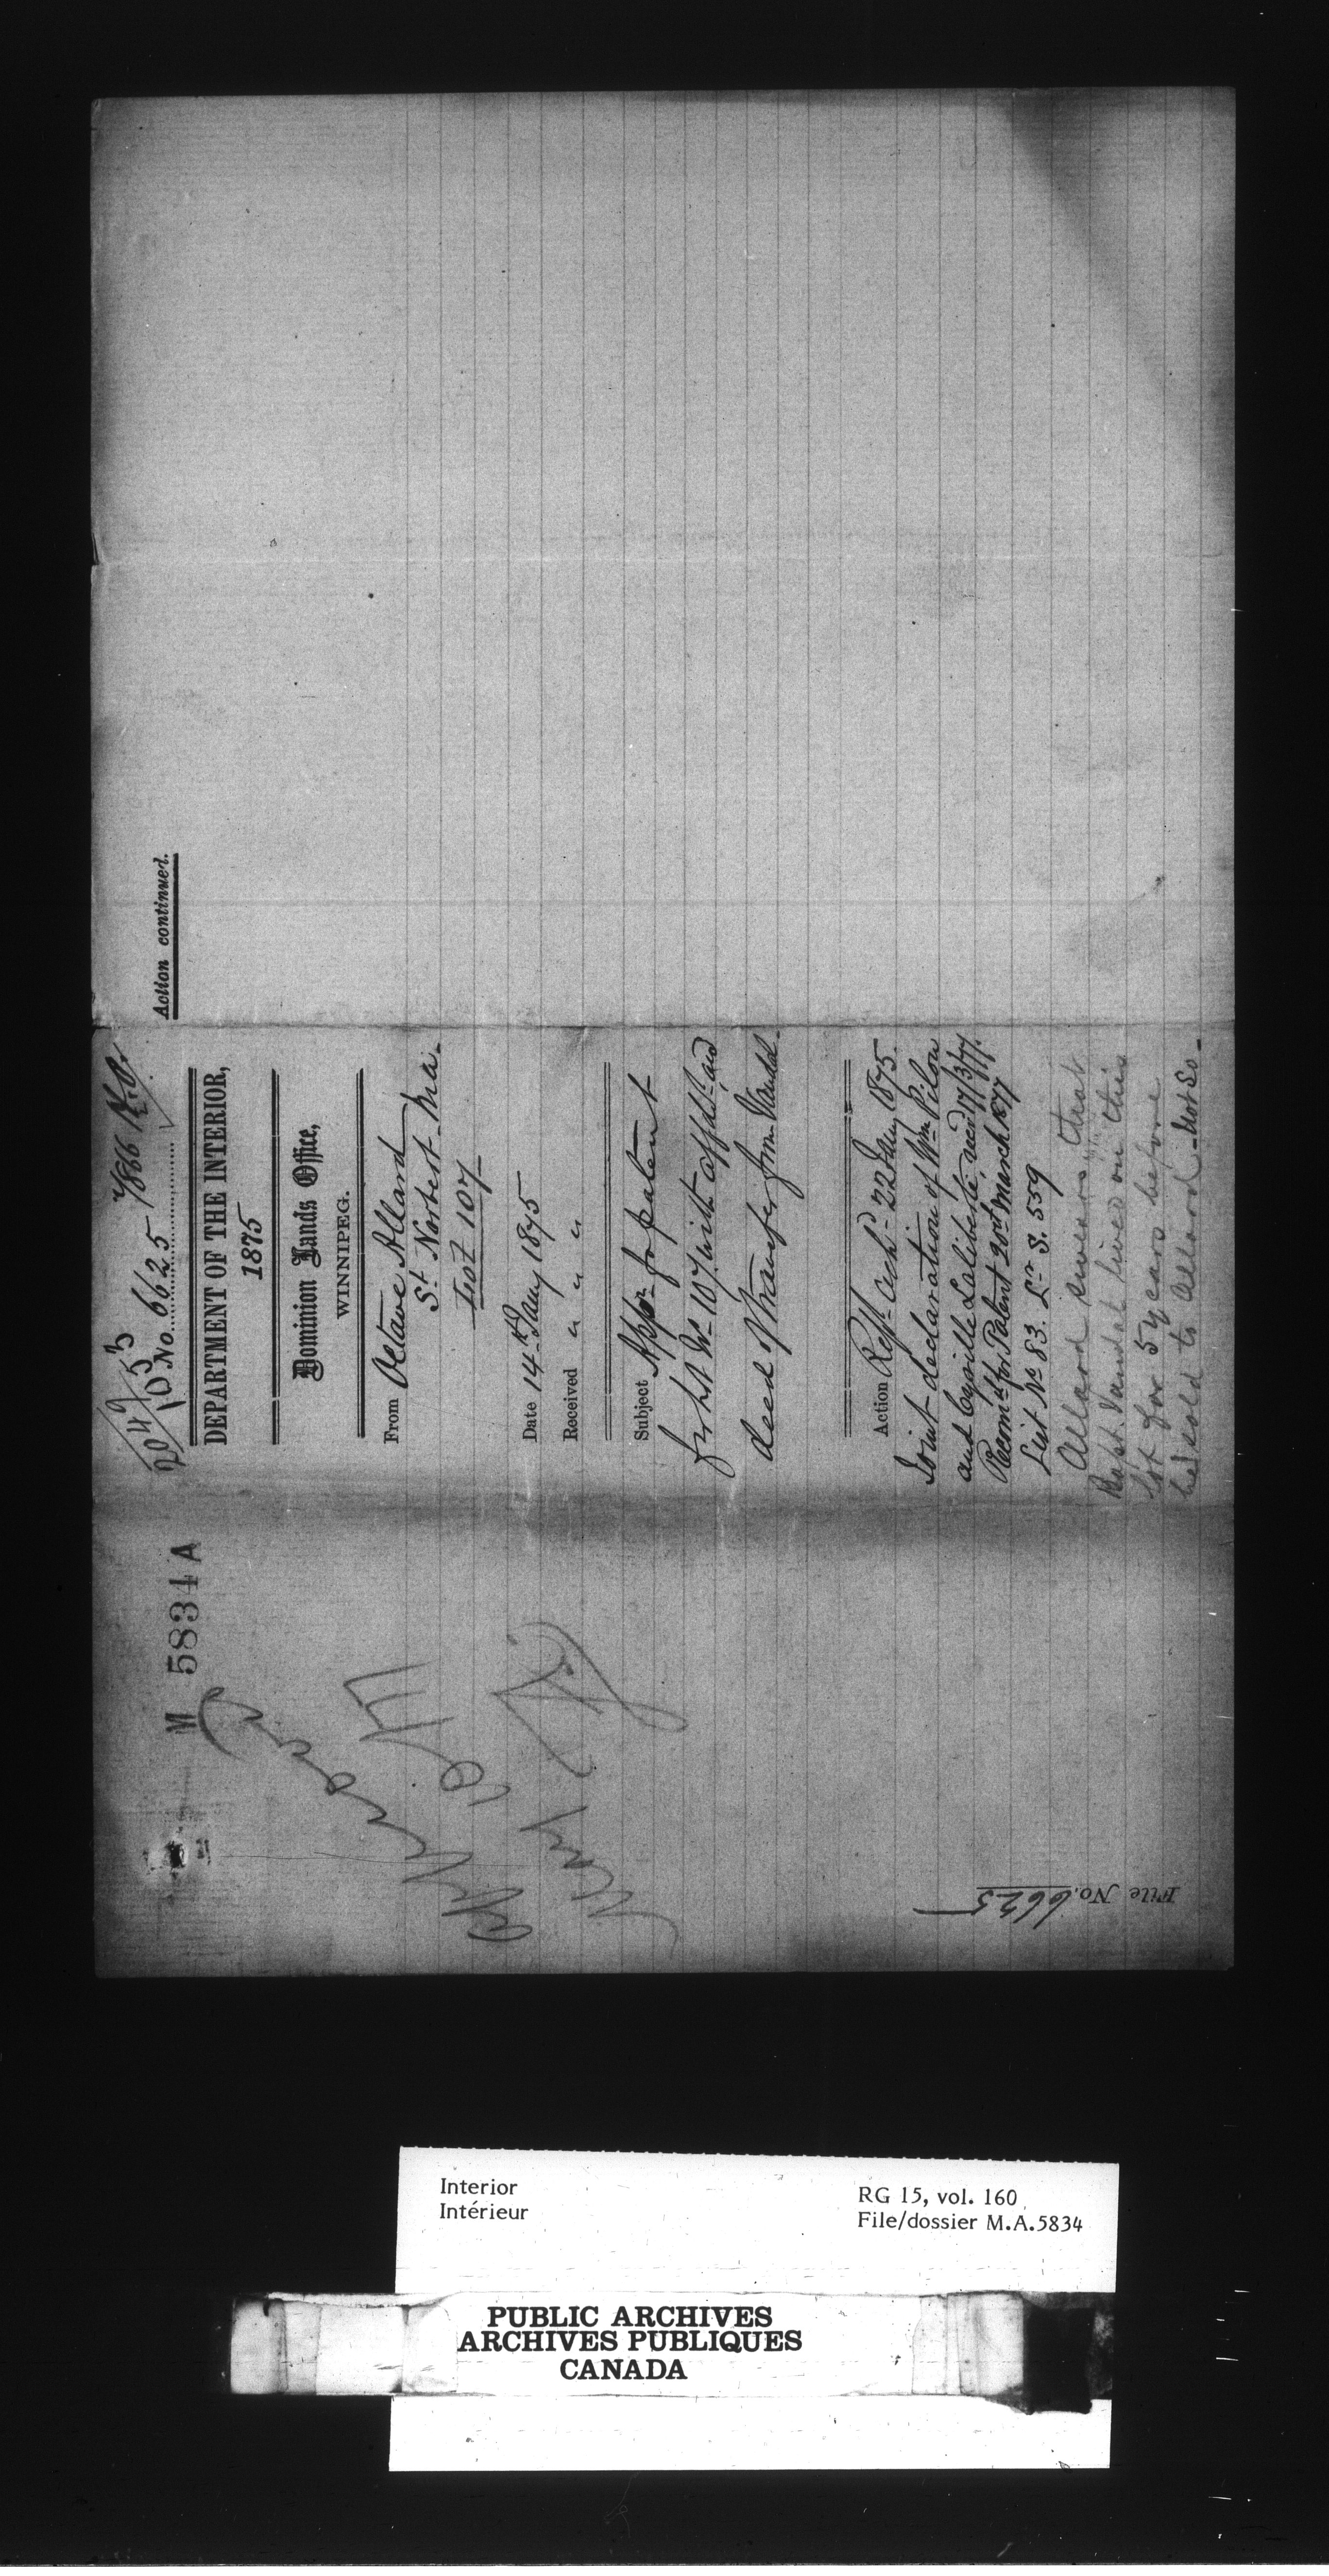 M 5834 A
2049
1053
7866
No. 6625
DEPARTMENT OF THE INTERIOR,
1875
Dominion Lands Office,
WINNIPEG.
From Octave Allard
St. Norbert Ma.
Lot 107
Date 14th Jany 1875
Received " " "
Subject Appn for patent
for Lot No 107 with affdt and
deed of transfer from Vandal.
Action Reft. Ackd 22 Jany 1875.
Joint declaration of Wm Pilon
and Cyrille Laliberté, recd 17/3/77.
Recomd for Patent 20th March 1877
List No 83. Lr S. 559
Allard swears that
Bapt. Vandal lived on this
lot for 5 years before
he sold to Allard - Not So -
Action continued.
May
File No. 6625
Interior
Intérieur
RG 15, vol. 160
File/dossier M.A.5834
PUBLIC ARCHIVES
ARCHIVES PUBLIQUES
CANADA